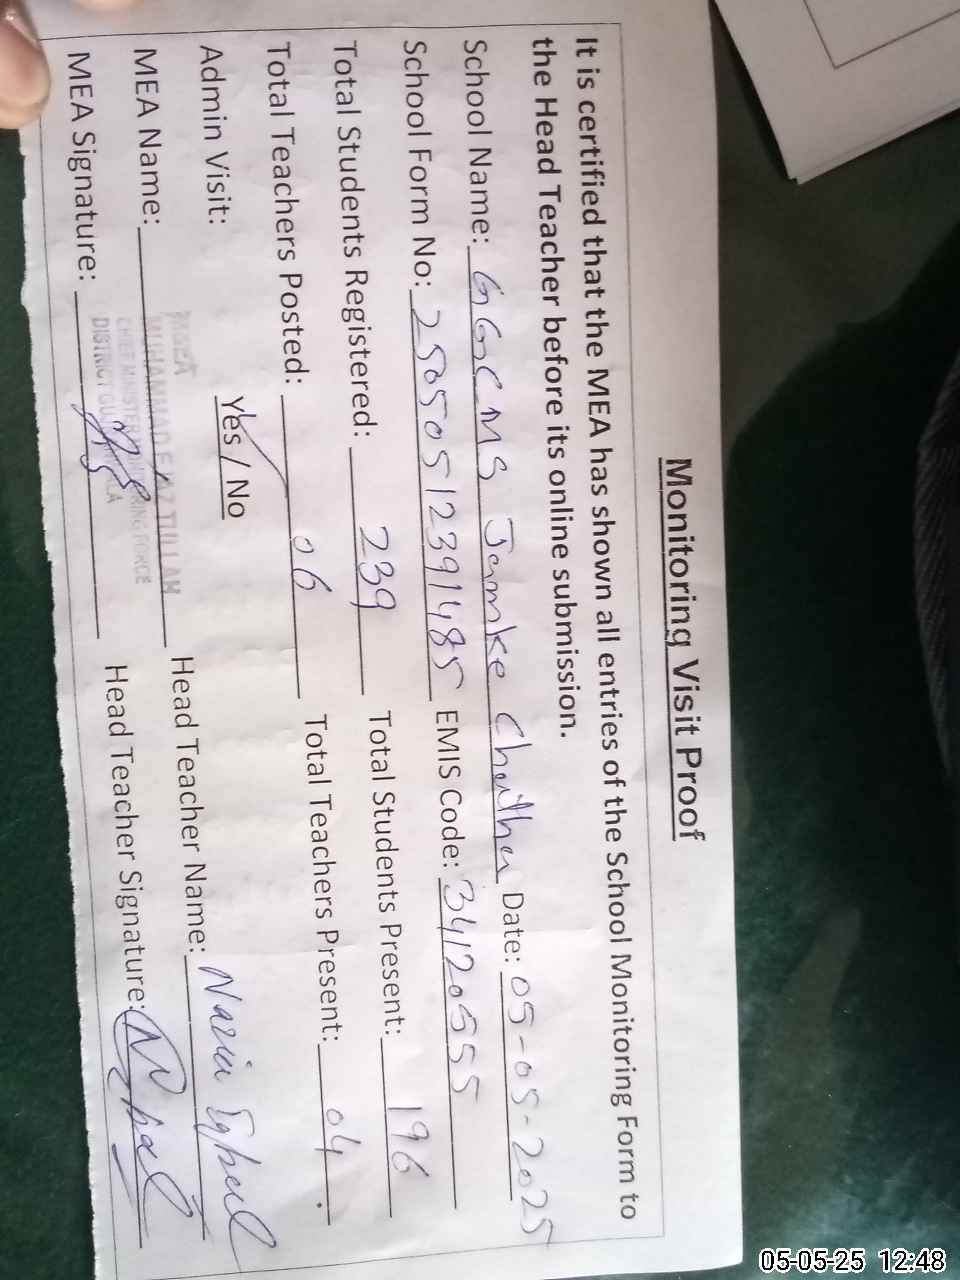 Monitoring Visit Proof
It is certified that the MEA has shown all entries of the School Monitoring Form to
the Head Teacher before its online submission.
School Name: GGCMS Jamke Chattha Date: 05-05-2025
School Form No: 25050512391485 EMIS Code: 34120555
Total Students Registered: 239 Total Students Present: 196
Total Teachers Posted: 06 Total Teachers Present: 04
Admin Visit: Yes / No
MEA Name: Head Teacher Name: Nazia Iqbal
MEA Signature: Head Teacher Signature:
MEA
MUHAMMAD
CHIEF MINISTER MONITORING FORCE
DISTRICT
05-05-25 12:48